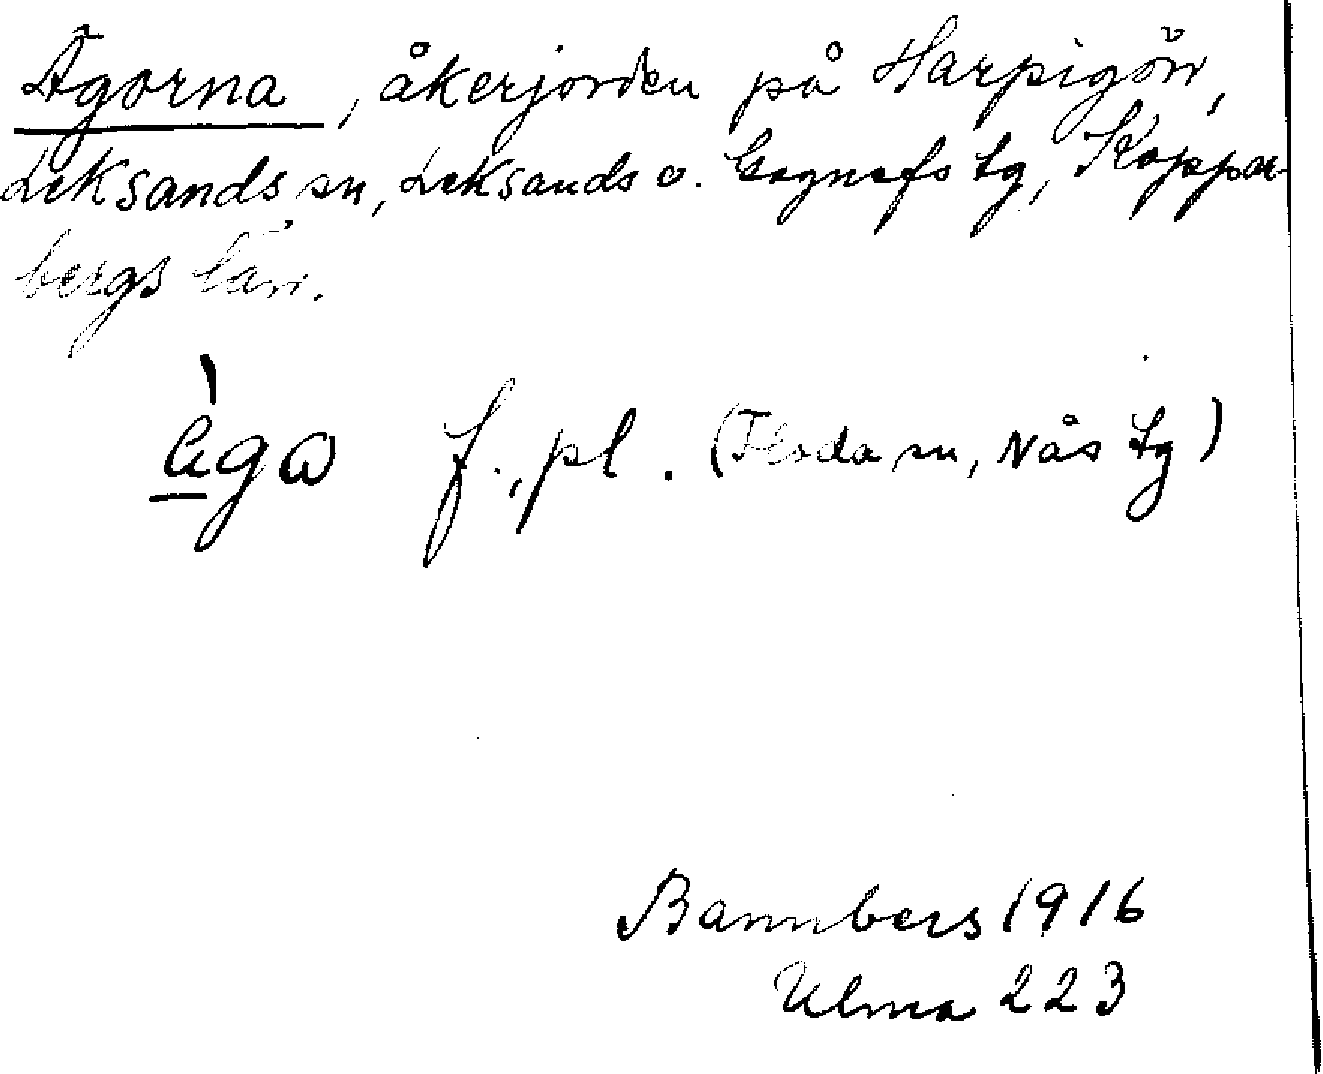 Ägorna, åkerjorden på Harpigön,
Leksands sn, Leksands o. Gagnefs tg, Koppar-
bergs län.
ägω f., pl. (Floda sn, Nås tg)
Bannbers 1916
Ulma 223